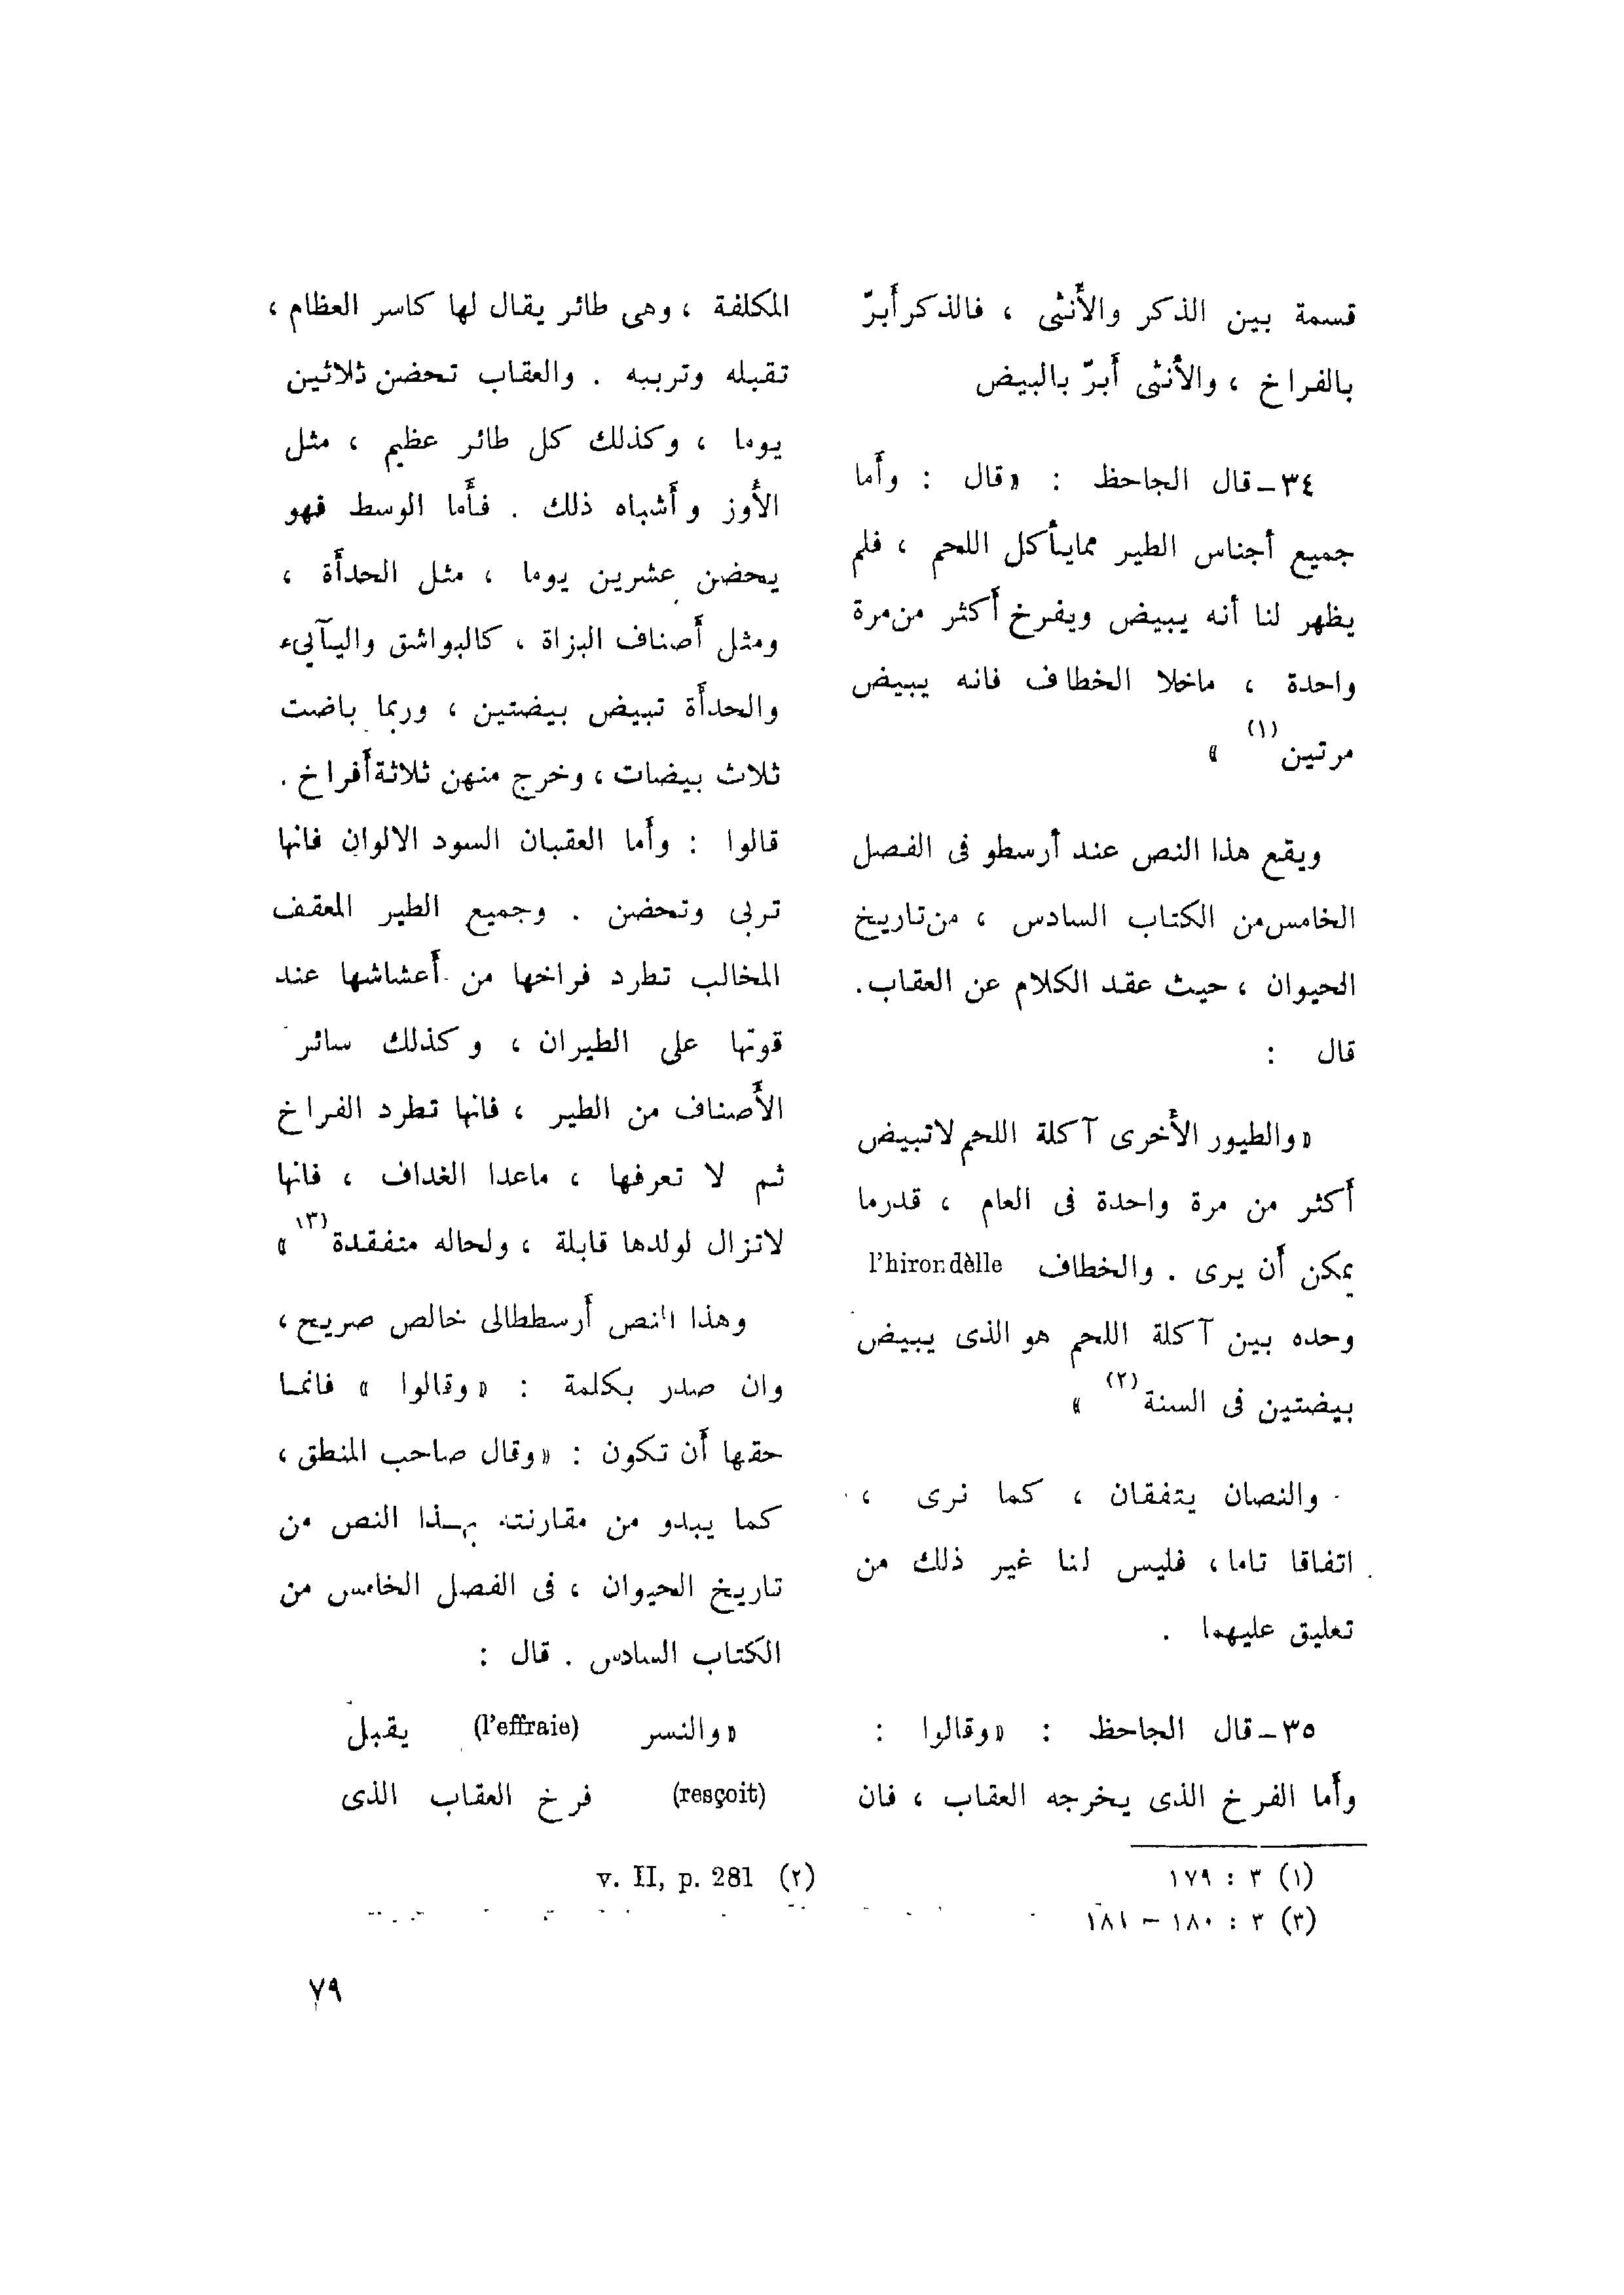 قسمة بين الذكر والأنثى ، فالذكر أبرّ
بالفراخ ، والأنثى أبرّ بالبيض
٣٤ـ قال الجاحظ : «قال : وأما
جميع أجناس الطير ممايأكل اللحم ، فلم
يظهر لنا أنه يبيض ويفرخ أكثر من مرة
واحدة ، ماخلا الخطاف فانه يبيض
مرتين (١) »
ويقع هذا النص عند أرسطو فى الفصل
الخامس من الكتاب السادس ، من تاريخ
الحيوان ، حيث عقد الكلام عن العقاب.
قال :
«والطيور الأخرى آكلة اللحم لاتبيض
أكثر من مرة واحدة فى العام ، قدرما
يمكن أن يرى . والخطاف l'hirondèlle
وحده بين آكلة اللحم هو الذى يبيض
بيضتين فى السنة (٢) »
والنصان يتفقان ، كما نرى ،
اتفاقا تاما ، فليس لنا غير ذلك من
تعليق عليهما .
٣٥ـ قال الجاحظ : «وقالوا :
وأما الفرخ الذى يخرجه العقاب ، فان
المكلفة ، وهى طائر يقال لها كاسر العظام ،
تقبله وتربيه . والعقاب تحضن ثلاثين
يوما ، وكذلك كل طائر عظيم ، مثل
الأوز وأشباه ذلك . فأما الوسط فهو
يحضن عشرين يوما ، مثل الحدأة ،
ومثل أصناف البزاة ، كالبواشق واليآيىء
والحدأة تبيض بيضتين ، وربما باضت
ثلاث بيضات ، وخرج منهن ثلاثة أفراخ .
قالوا : وأما العقبان السود الالوان فانها
تربى وتحضن . وجميع الطير المعقف
المخالب تطرد فراخها من أعشاشها عند
قوتها على الطيران ، وكذلك سائر
الأصناف من الطير ، فانها تطرد الفراخ
ثم لا تعرفها ، ماعدا الغداف ، فانها
لاتزال لولدها قابلة ، ولحاله متفقدة (٣) »
وهذا النص أرسططالى خالص صريح ،
وان صدر بكلمة : «وقالوا » فانما
حقها أن تكون : «وقال صاحب المنطق ،
كما يبدو من مقارنته بهـذا النص من
تاريخ الحيوان ، فى الفصل الخامس من
الكتاب السادس . قال :
«والنسر (l'effraie) يقبل
(resçoit) فرخ العقاب الذى
(١) ٣ : ١٧٩
(٢) v. II, p. 281
(٣) ٣ : ١٨٠ – ١٨١
٧٩